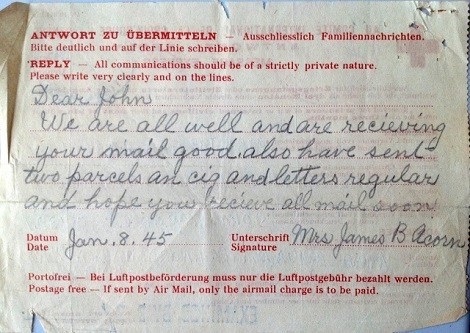 ANTWORT ZU ÜBERMITTELN — Ausschliesslich Familiennachrichten.
Bitte deutlich und auf der Linie schreiben.
REPLY — All communications should be of a strictly private nature.
Please write very clearly and on the lines.
Dear John
We are all well and are recieving
your mail good. also have sent
two parcels an cig and letters regular
and hope you recieve all mail soon
Datum
Date Jan. 8. 45 Unterschrift
Signature Mrs James B Acorn
Portofrei — Bei Luftpostbeförderung muss nur die Luftpostgebühr bezahlt werden.
Postage free — If sent by Air Mail, only the airmail charge is to be paid.